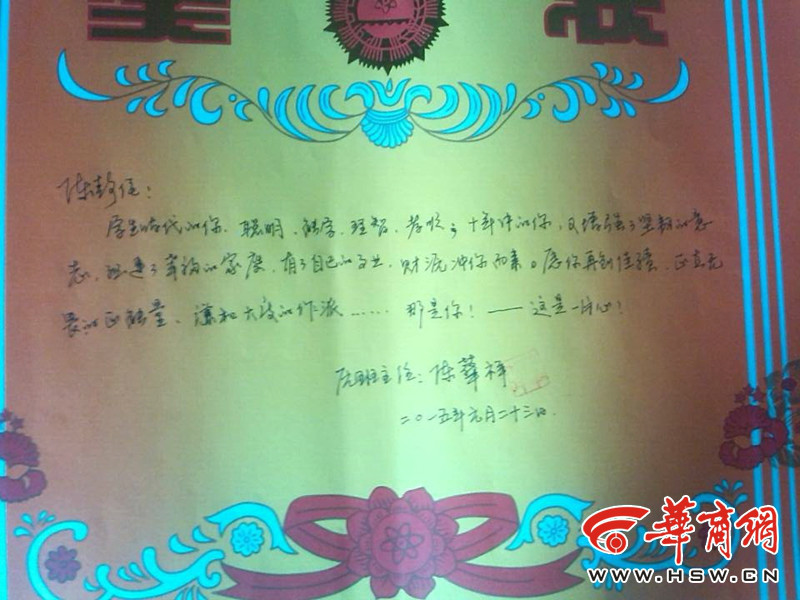 奖 状
学生时代的你、聪明、能学、理智、孝顺,十年许的你,又增强了坚韧的意
志,组建了幸福的家庭,有了自己的事业,财源冲你而来。愿你再创佳绩,正直无
畏的正能量,谦和大度的作派……那是你!——这是一片心!
原班主任:陈
二〇一五年元月二十三日.
華商網
WWW.HSW.CN